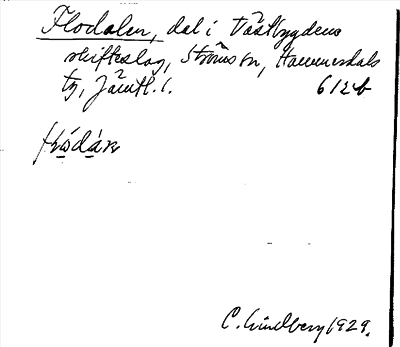 Flodalen, dal i Västbygdens
skifteslag, Ströms sn, Hammerdals
tg, Jämtl. l. 612b
C. Lindberg 1929.